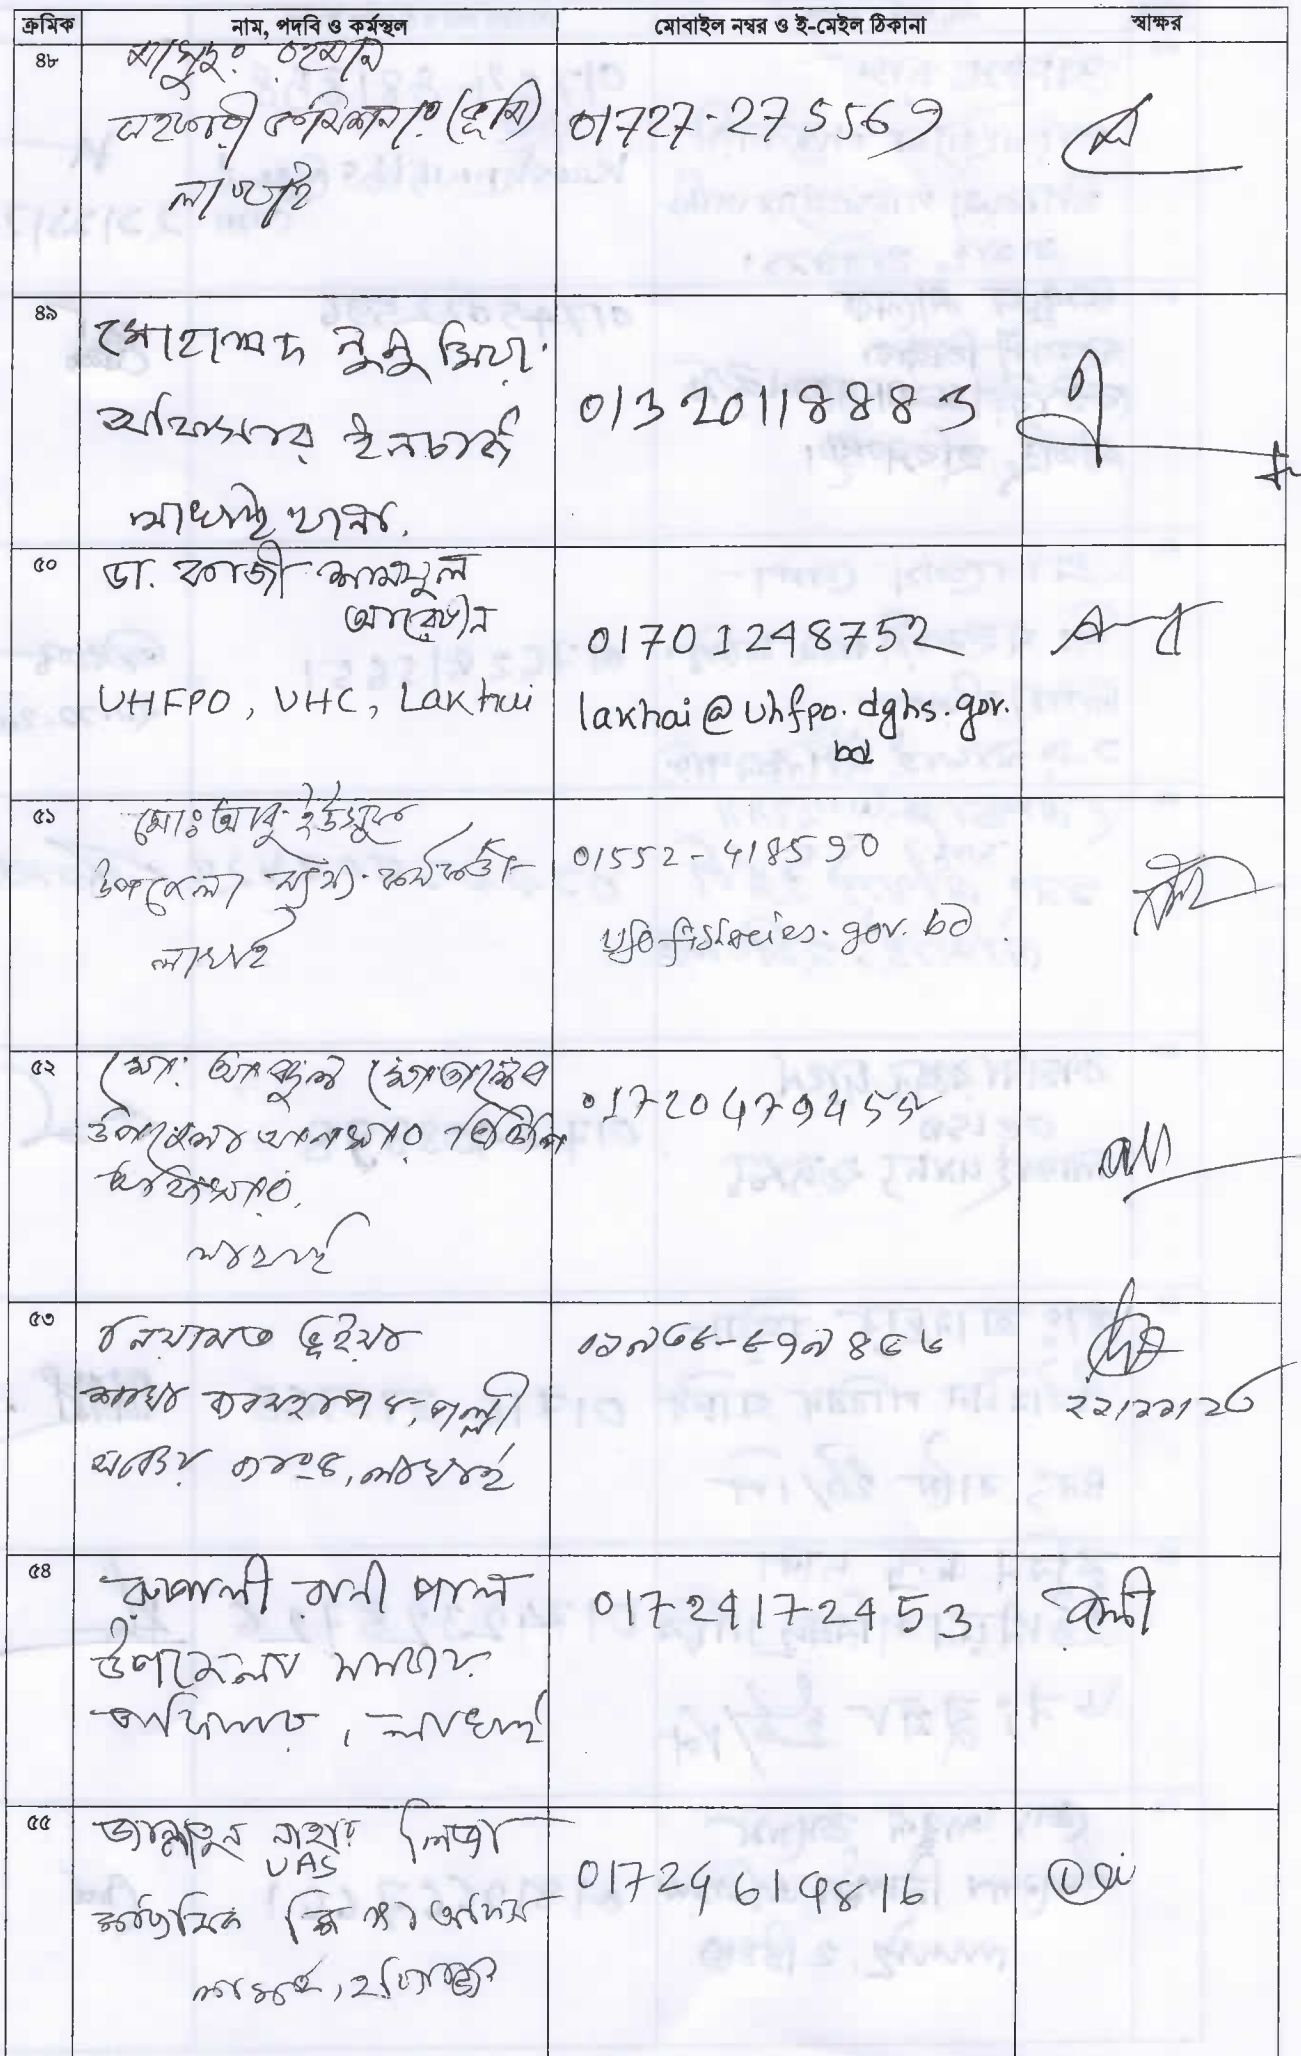 ক্রমিক নাম, পদবি ও কর্মস্থল মোবাইল নম্বর ও ই-মেইল ঠিকানা স্বাক্ষর
৪৮
মাসুদুর রহমান
সহকারী কমিশনার (ভূমি)
লাখাই
01727-275569
৪৯
মোহাম্মদ নুনু মিয়া
অফিসার ইনচার্জ
লাখাই থানা.
01320118883
৫০
ডা. কাজী শামসুল
আরেফীন
UHFPO, UHC, Lakhai
01701248752
lakhai@uhfpo.dghs.gov.
bd
৫১
মোঃ আবু ইউসুফ
উপজেলা মৎস্য কর্মকর্তা
লাখাই
01552-418590
ufofisheries.gov.bd
৫২
মো: আবদুল মোতালেব
উপজেলা আনসার ভিডিপি
অফিসার,
লাখাই
01720479455
৫৩
নিয়ামত ভূইয়া
শাখা ব্যবস্থাপক, পল্লী
সঞ্চয় ব্যাংক, লাখাই
৫৪
রুপালী রানী পাল
উপজেলা সমবায়
অফিসার, লাখাই
01724172453
৫৫
জান্নাতুন নাহার লিজা
UAS
মাধ্যমিক শিক্ষা অফিস
লাখাই, হবিগঞ্জ
01724614816